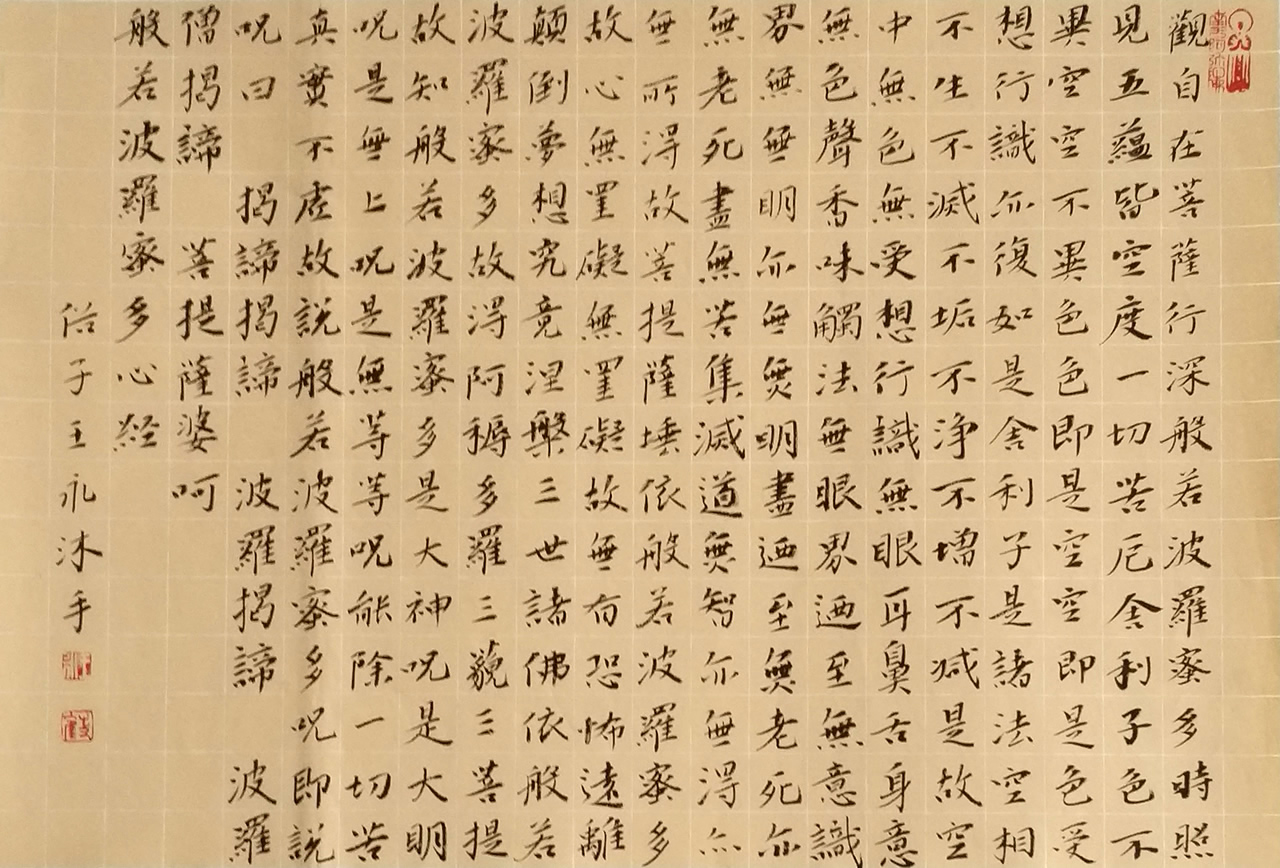 觀自在菩薩行深般若波羅蜜多時照
見五蘊皆空度一切苦厄舍利子色不
異空空不異色色即是空空即是色受
想行識亦復如是舍利子是諸法空相
不生不滅不垢不淨不增不減是故空
中無色無受想行識無眼耳鼻舌身意
無色聲香味觸法無眼界迺至無意識
界無無明亦無無明盡迺至無老死亦
無老死盡無苦集滅道無智亦無得亦
無所得故菩提薩埵依般若波羅蜜多
故心無罣礙無罣礙故無有恐怖遠離
顛倒夢想究竟涅槃三世諸佛依般若
波羅蜜多故得阿耨多羅三藐三菩提
故知般若波羅蜜多是大神呪是大明
呪是無上呪是無等等呪能除一切苦
真實不虛故說般若波羅蜜多呪即說
呪曰 揭諦揭諦 波羅揭諦 波羅
僧揭諦 菩提薩婆呵
般若波羅蜜多心経
俗子王永沐手